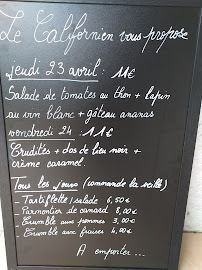 Le Californien vous propose
Jeudi 23 avril : 11€
Salade de tomates au thon + lapin
au vin blanc + gâteau ananas
vendredi 24 : 11€
Crudités + dos de lieu noir +
crème caramel.
Tous les jours (commande la veille)
- Tartiflette / salade 6,50€
- Parmentier de canard 8,00€
- Crumble aux pommes 3,00€
- Crumble aux fraises 4,00€
A emporter...